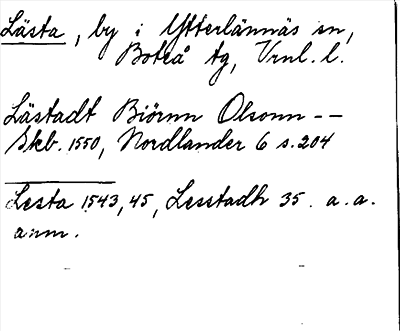 Lästa, by i Ytterlännäs sn,
Boteå tg, Vrnl. l.
Lästadt Biörnn Olsonn --
Skb. 1550, Nordlander 6 s. 204
Lesta 1543, 45, Lesstadh 35. a. a.
anm.